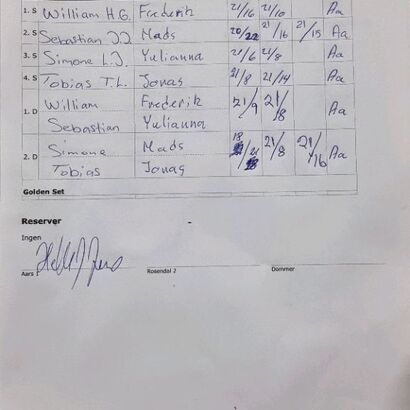 1. S William H.G. Frederik 21/16 21/10 Aa
2. S Sebastian J.J. Mads 20/22 21/16 21/15 Aa
3. S Simone L.J. Yulianna 21/6 21/8 Aa
4. S Tobias T.L. Jonas 21/8 21/14 Aa
1. D William Frederik 21/9 21/8 Aa
Sebastian Yulianna
2. D Simone Mads 18/21 21/8 21/16 Aa
Tobias Jonas
Golden Set
Reserver
Ingen
Aars 1 Rosendal 2 Dommer